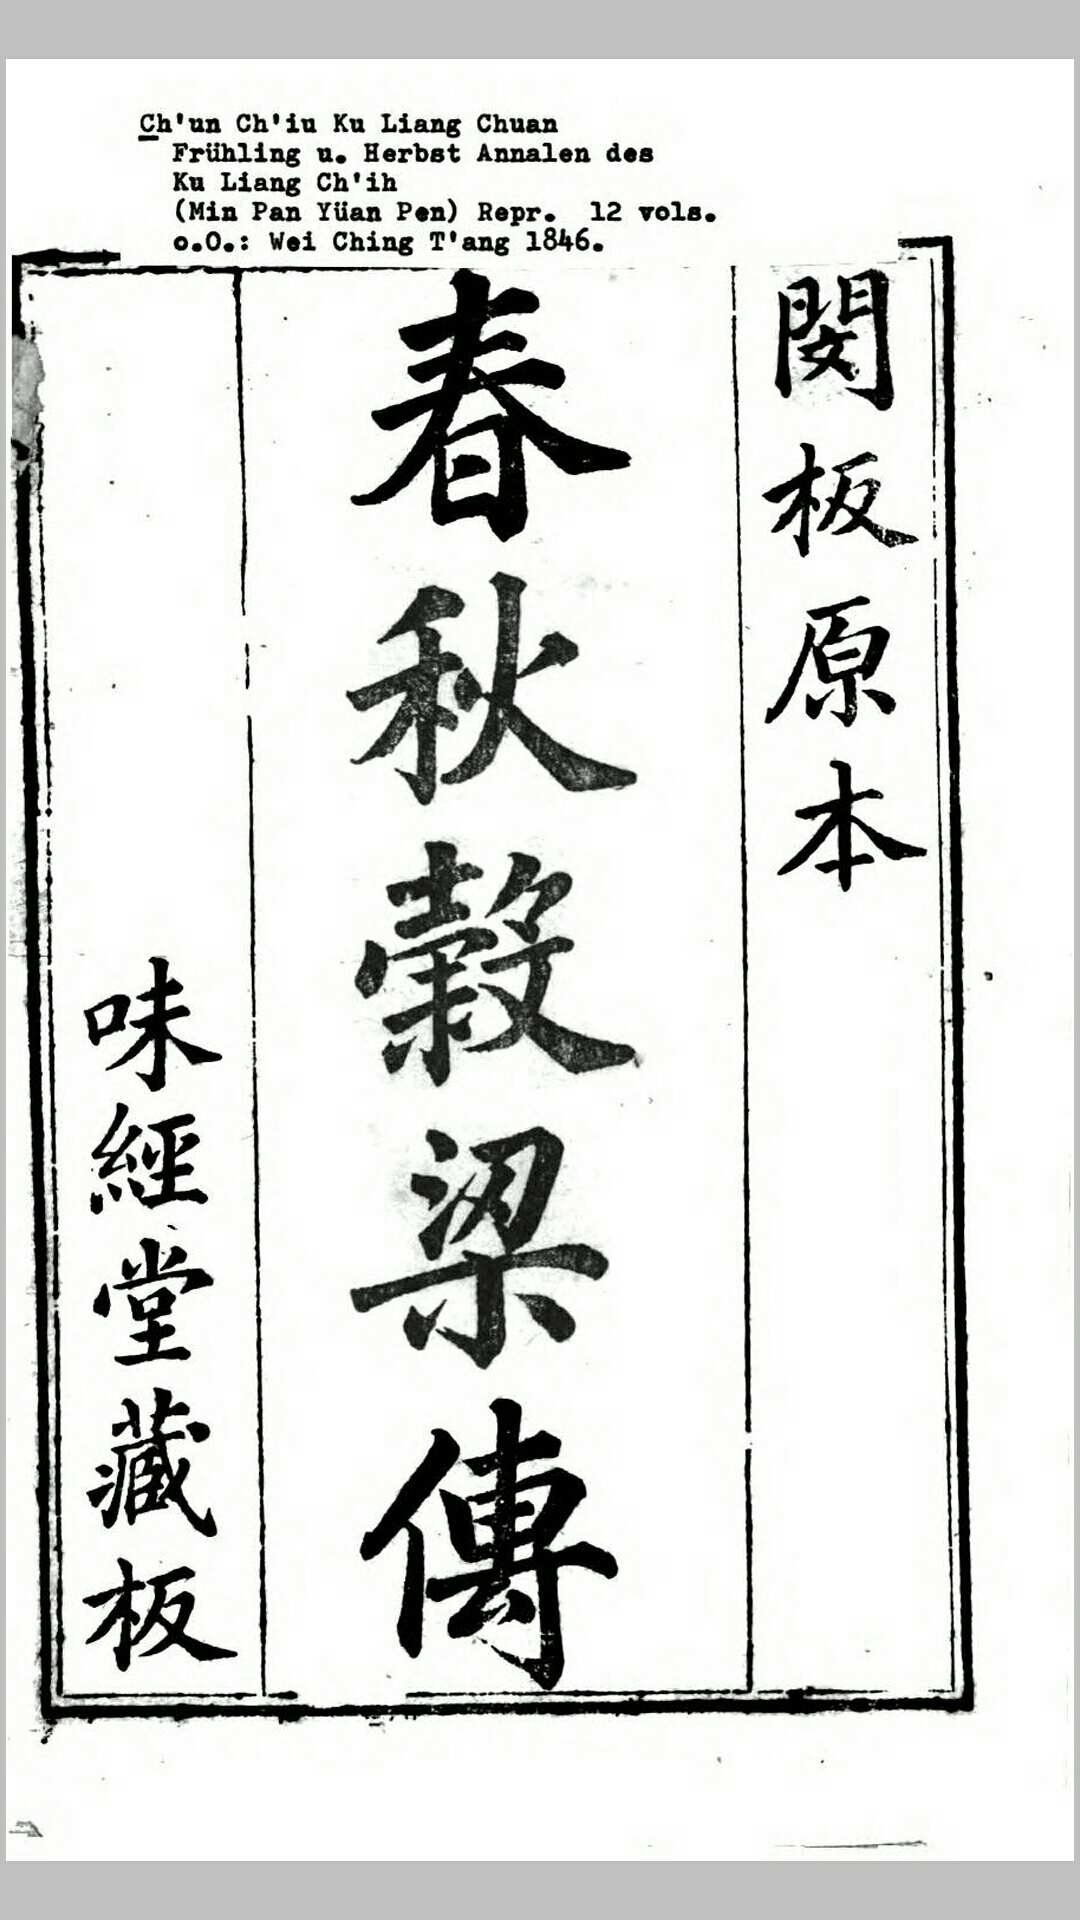 Ch'un Ch'iu Ku Liang Chuan
Frühling u. Herbst Annalen des
Ku Liang Ch'ih
(Min Pan Yüan Pen) Repr. 12 vols.
o.O.: Wei Ching T'ang 1846.
閔板原本
春秋榖梁傳
味經堂藏板